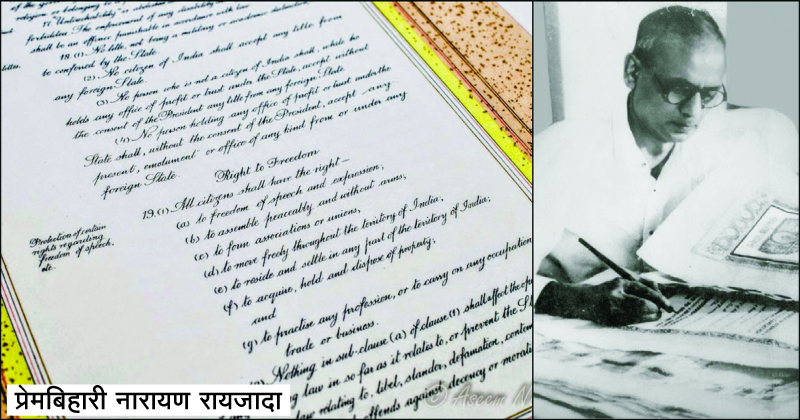 of the gove
religion or belonging to a
17. "Untouchability" is abolished
forbidden. The enforcement of any disability
shall be an offence punishable in accordance with law.
18. (1) No title, not being a military or academic distinction,
be conferred by the State.
(2) No citizen of India shall accept any title from
any foreign State.
(3) No person who is not a citizen of India shall, while he
holds any office of profit or trust under the State, accept without
the consent of the President any title from any foreign State.
(4) No person holding any office of profit or trust under the
State shall, without the consent of the President, accept any
present, emolument or office of any kind from or under any
foreign State.
Right to Freedom
Protection of certain
rights regarding
freedom of speech,
etc.
19. (1) All citizens shall have the right—
(a) to freedom of speech and expression;
(b) to assemble peaceably and without arms;
(c) to form associations or unions;
(d) to move freely throughout the territory of India;
(e) to reside and settle in any part of the territory of India;
(f) to acquire, hold and dispose of property;
and
(g) to practise any profession, or to carry on any occupation
trade or business.
Nothing in sub-clause (a) of clause (1) shall affect the ope
ng law in so far as it relates to, or prevent the S
law relating to, libel, slander, defamation, contem
offends against decency or morali
© Aseem
प्रेमबिहारी नारायण रायजादा